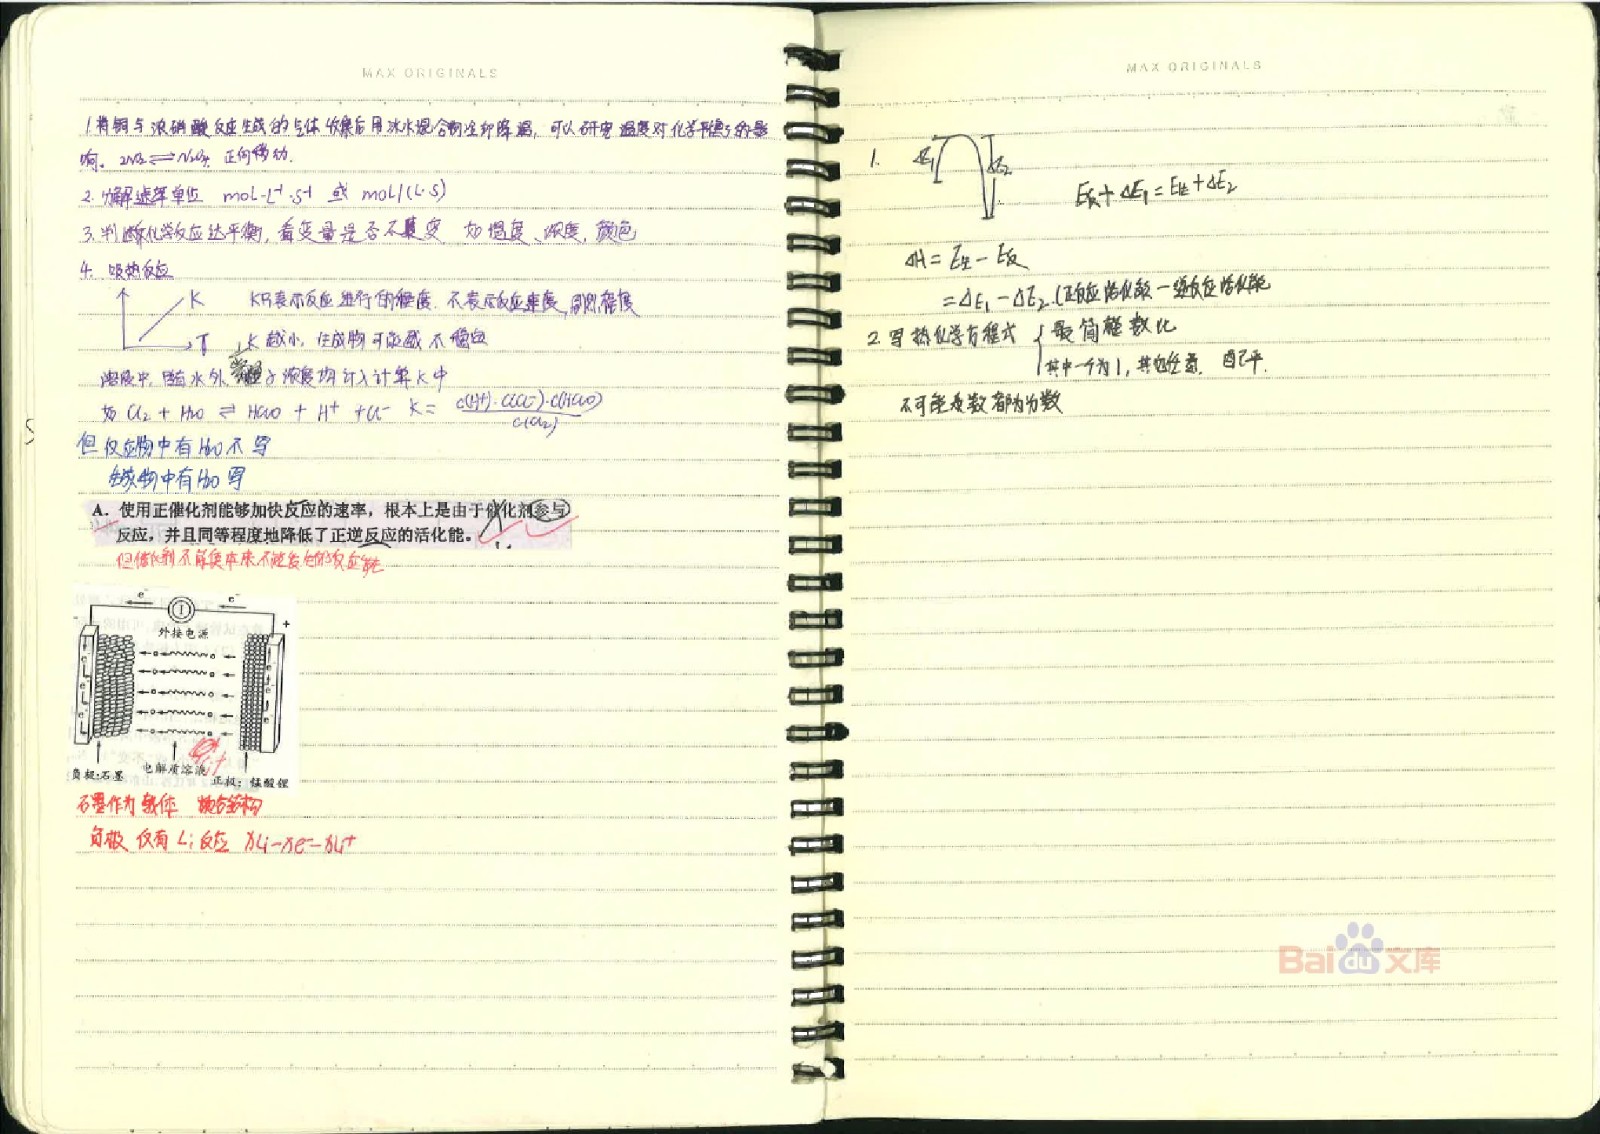 MAX ORIGINALS
1.将铜与浓硝酸反应生成的气体收集后用冰水混合物冷却降温，可以研究温度对化学平衡的影
响。2NO₂⇌N₂O₄ 正向移动.
2.分解速率单位 mol·L⁻¹·S⁻¹ 或 mol/(L·S)
3.判断化学反应达平衡，看变量是否不变 如温度、浓度，颜色
4. 吸热反应
K K只表示反应进行的程度，不表示反应速度，
T K越小，生成物可能越不稳定
溶液中，除水外， 浓度均计入计算K中
如 Cl₂ + H₂O ⇌ HClO + H⁺ + Cl⁻ K = c(H⁺)·c(Cl⁻)·c(HClO)
c(Cl₂)
但反应物中有H₂O不写
生成物中有H₂O写
A. 使用正催化剂能够加快反应的速率，根本上是由于催化剂参与
反应，并且同等程度地降低了正逆反应的活化能。
但催化剂不能使本来不能发生的反应
e⁻ e⁻
- +
外接电源
负极:石墨 电解质溶液 正极: 锰酸锂
Li⁺
石墨作为载体
负极 仅有 Li 反应 xLi-xe⁻=xLi⁺
MAX ORIGINALS
1. ΔE₁ ΔE₂
E反+ΔE₁=E生+ΔE₂
ΔH = E生 - E反
= ΔE₁ - ΔE₂.(正反应活化能 - 逆反应活化能
2.写热化学方程式 最简整数比
其中一个为1，其他任意. 自己平.
不可能系数都为分数
Baidu文库